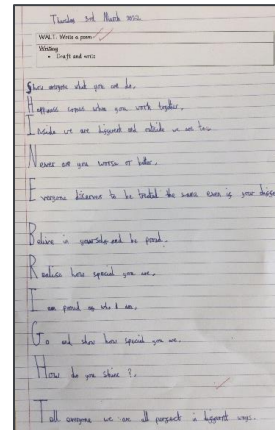 Thursday 3rd March 2022
WALT: Write a poem
Writing
• Draft and edit
Show everyone what you can do,
Happiness comes when you work together,
Inside we are different and outside we are too.
Never are you worse or better,
Everyone deserves to be treated the same even is your
Believe in yourself and be proud,
Realise how special you are,
I am proud of who I am,
Go and show how special you are,
How do you shine?,
Tell everyone we are all perfect in different ways.